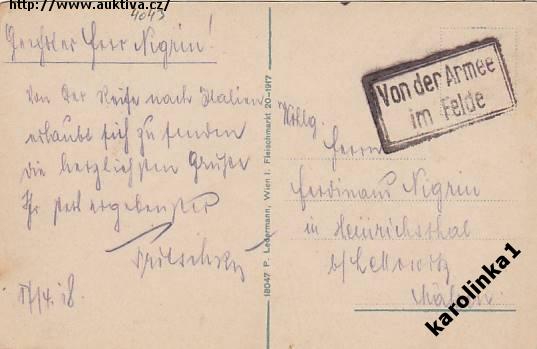 http://www.auktiva.cz/
4043
Geehrter Herr Nigrin!
Von der Reise nach Italien
erlaubt sich zu senden
die herzlichsten Grüße
Ihr stets ergebenster
17/4. 18.
18047 P. Ledermann, Wien I. Fleischmarkt 20-1917
Von der Armee
im Felde
Wohlg.
Herrn
Ferdinand Nigrin
in Heinrichsthal
b/ Lettowitz
Mähren
karolinka1